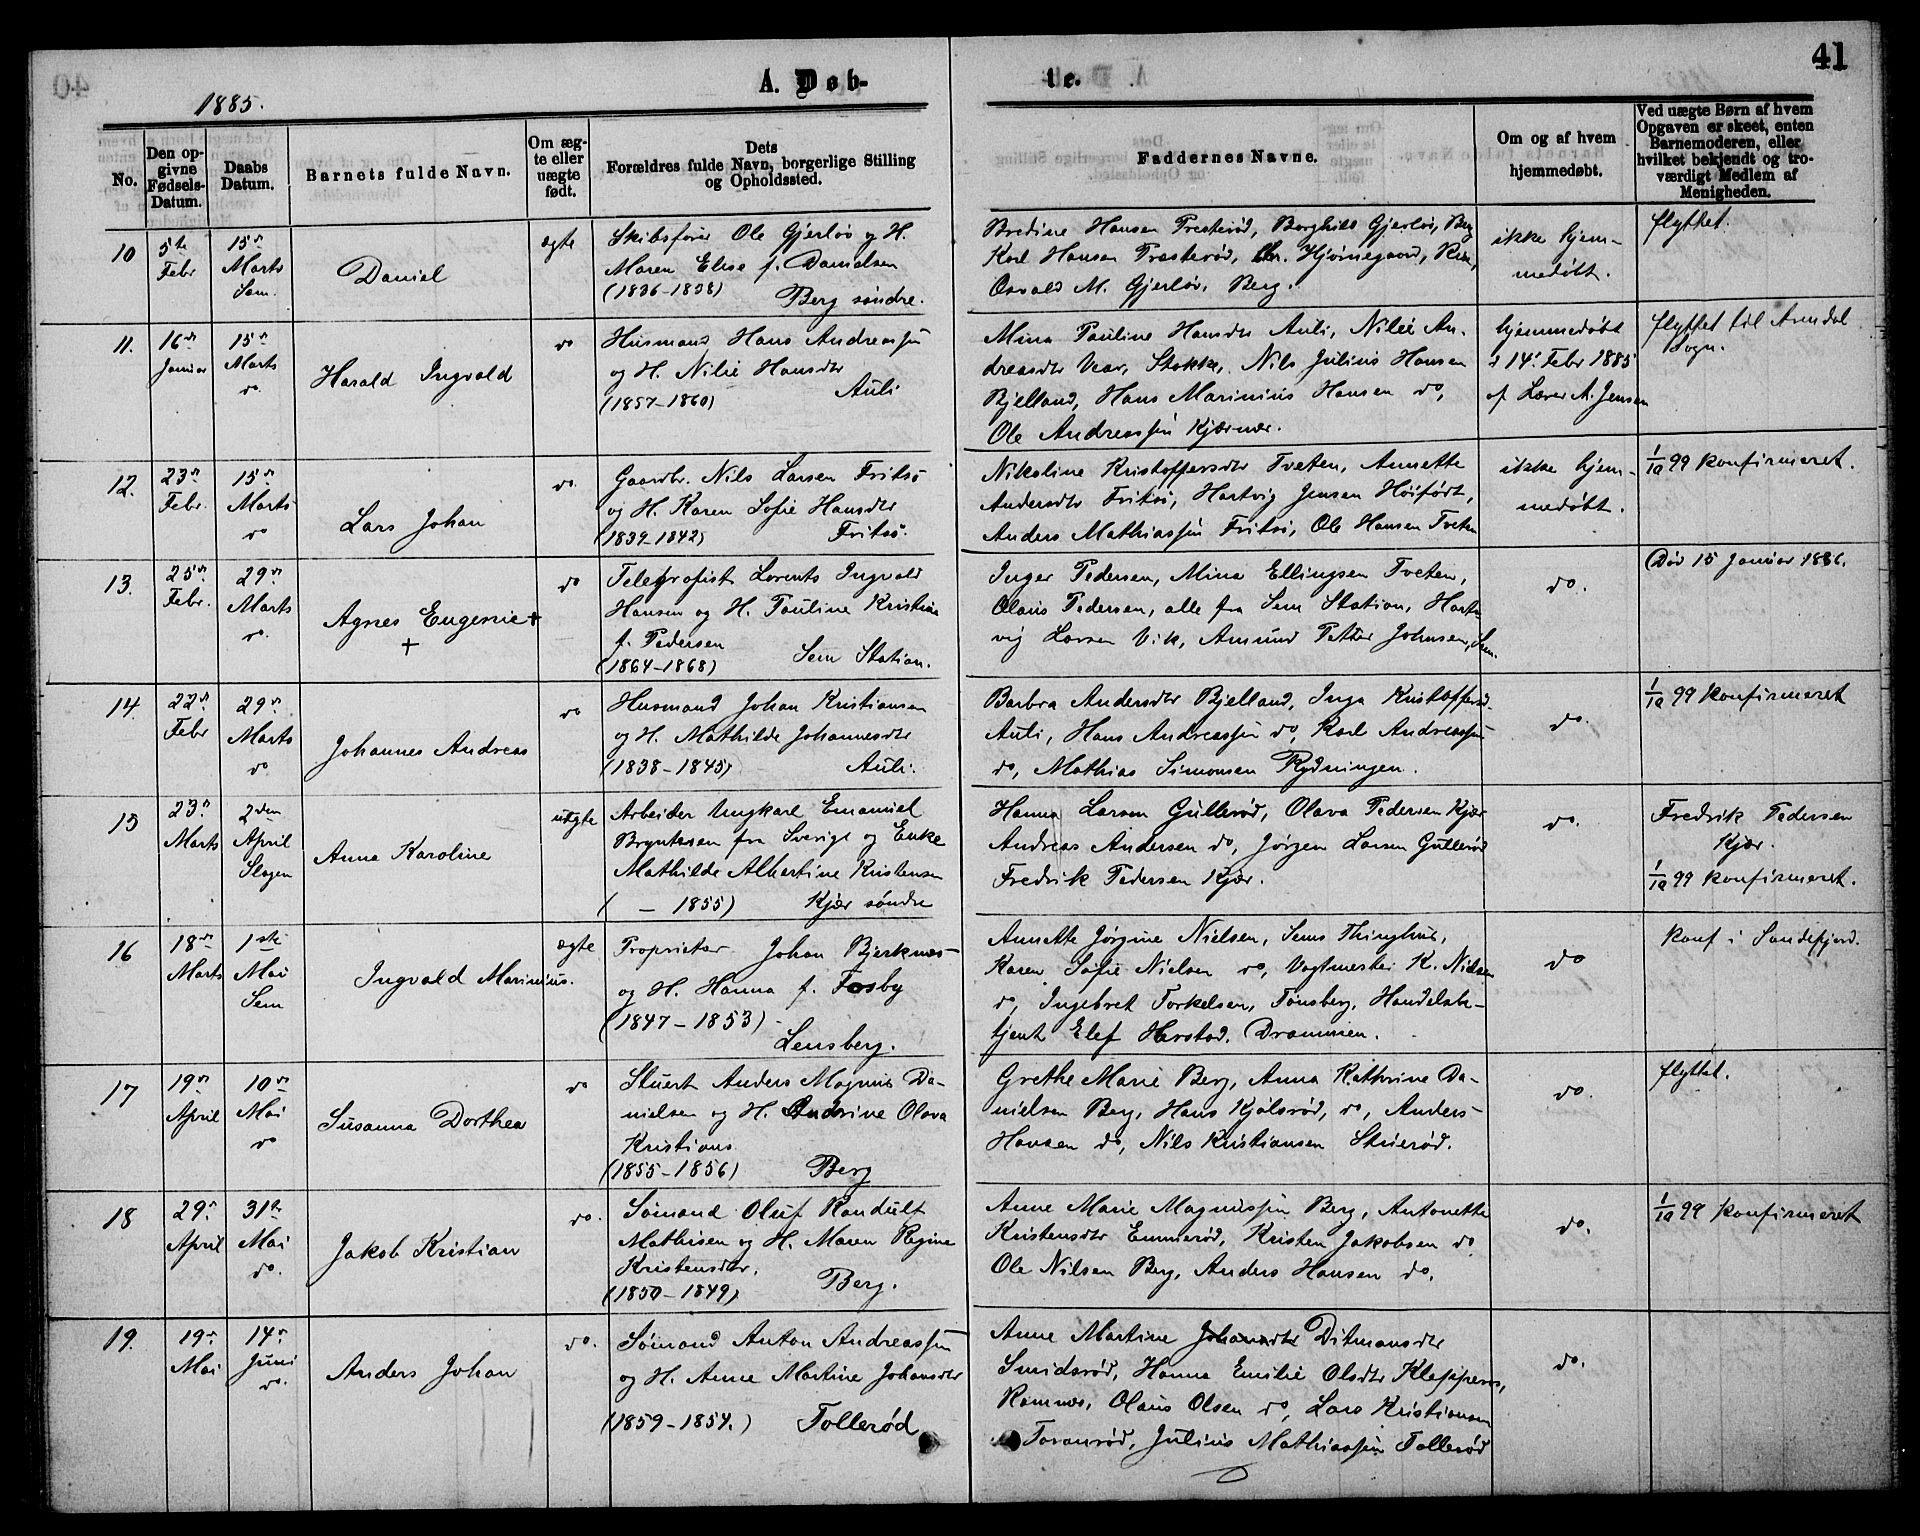 41
1885.
A. Døb-
te.
No.
Den op-
givne
Fødsels-
Datum.
Daabs
Datum.
Barnets fulde Navn.
Om æg-
te eller
uægte
født.
Dets
Forældres fulde Navn, borgerlige Stilling
og Opholdssted.
Faddernes Navne.
Om og af hvem
hjemmedøbt.
Ved uægte Børn af hvem
Opgaven er skeet, enten
Barnemoderen, eller
hvilket bekjendt og tro-
værdigt Medlem af
Menigheden.
10
5te
Febr
15de
Marts
Sem.
Daniel
ægte
Skibsfører Ole Gjerløv og H.
Maren Elise f. Danielsen
(1836-1838) Berg søndre.
Bredine Hansen Presterød, Borghild Gjerløv, Berg
Karl Hansen Præsterød, Chr. Hjørnegaard,
Osvald M. Gjerløv, Berg.
ikke hjem-
medøbt.
flyttet.
11.
16de
Januar
15de
Marts
do.
Harald Ingvald
do
Husmand Hans Andreassen
og H. Nilie Hansdtr
(1857-1860) Auli
Mina Pauline Hansdtr Auli, Nilie An-
dreasdtr Vear, Stokke, Nils Julius Hansen
Bjelland, Hans Marinius Hansen do,
Ole Andreassen Kjærnær.
hjemmedøbt
d 14de Febr 1885
af Lærer A. Jensen
flyttet til Arendal
Sogn.
12.
23de
Febr.
15de
Marts
do
Lars Johan
do.
Gaardbr. Nils Larsen Fritsø
og H. Karen Sofie Hansdtr
(1839-1842) Fritsø.
Nikoline Kristoffersdtr Tveten, Annette
Andersdtr Fritsø, Hartvig Jensen Høifødt,
Anders Mathiassen Fritsø, Ole Hansen Tveten
ikke hjem-
medøbt.
1/10 99 konfirmeret.
13.
25de
Febr.
29de
Marts
do.
Agnes Eugenie +
+
do
Telegrafist Lorents Ingvald
Hansen og H. Pauline Kristina
f. Pedersen
(1864-1868) Sem Station.
Inger Pedersen, Mina Ellingsen Tveten,
Olaus Pedersen, alle fra Sem Station, Hart-
vig Larsen Vik, Amund Petter Johnsen, Sem.
do.
Død 15 Januar 1886.
14.
22de
Febr
29de
Marts
do
Johannes Andreas
do
Husmand Johan Kristiansen
og H. Mathilde Johannesdtr
(1838-1845) Auli.
Barbra Andersdtr Bjelland, Inga Kristoffersd.
Auli, Hans Andreassen do, Karl Andreassen
do, Mathias Simonsen Rydningen.
do.
1/10 99 konfirmeret
15
23de
Marts
2den
April
Slagen
Anna Karoline
uægte
Arbeider Ungkarl Emanuel
Bryntesen fra Sverige og Enke
Mathilde Albertine Kristensen
( - 1855) Kjær søndre
Hanna Larsen Gullerød, Olava Pedersen Kjær
Andreas Andersen do, Jørgen Larsen Gullerød
Fredrik Pedersen Kjær.
do.
Fredrik Pedersen
Kjær.
1/10 99 konfirmeret.
16
18de
Marts
1ste
Mai
Sem
Ingvald Marinius.
ægte
Proprietær Johan Bjerknæs
og H. Hanna f. Fosby
(1847-1853)
Lensberg.
Annette Jørgine Nielsen, Sems Thinghus,
Karen Sofie Nielsen do, Vagtmester K. Nielsen
do, Ingebret Torkelsen, Tønsberg, Handelsbe-
tjent Elef Harstad. Drammen.
do
konf i Sandefjord.
17
19de
April
10de
Mai
do
Susanna Dorthea
do
Stuert Anders Magnus Da-
nielsen og H. Andrine Olava
Kristians
(1855-1856) Berg
Grethe Marie Berg, Anna Kathrine Da-
nielsen Berg, Hans Kjølsrød, do, Anders
Hansen do, Nils Kristiansen Stuerød.
do.
flyttet.
18
29de
April
31te
Mai
do.
Jakob Kristian
do.
Sømand Oluf Randult
Mathisen og H. Maren Regine
Kristensdtr.
(1850-1849) Berg.
Anne Marie Magnussen Berg, Antonette
Kristensdtr Emmerød, Kristen Jakobsen do
Ole Nilsen Berg, Anders Hansen do.
do.
1/10 99 konfirmeret
19.
19de
Mai
14de
Juni
do.
Anders Johan
do.
Sømand Anton Andreassen
og H. Anne Martine Johansdtr
(1859-1854.) Tollerød
Anne Martine Johansdtr Ditmansdtr
Smidsrød, Hanna Emilie Olsdtr Klopperøs,
Ramnes, Olaus Olsen do, Lars Kristiansen
Taranrød, Julius Mathiassen Tollerød
do.